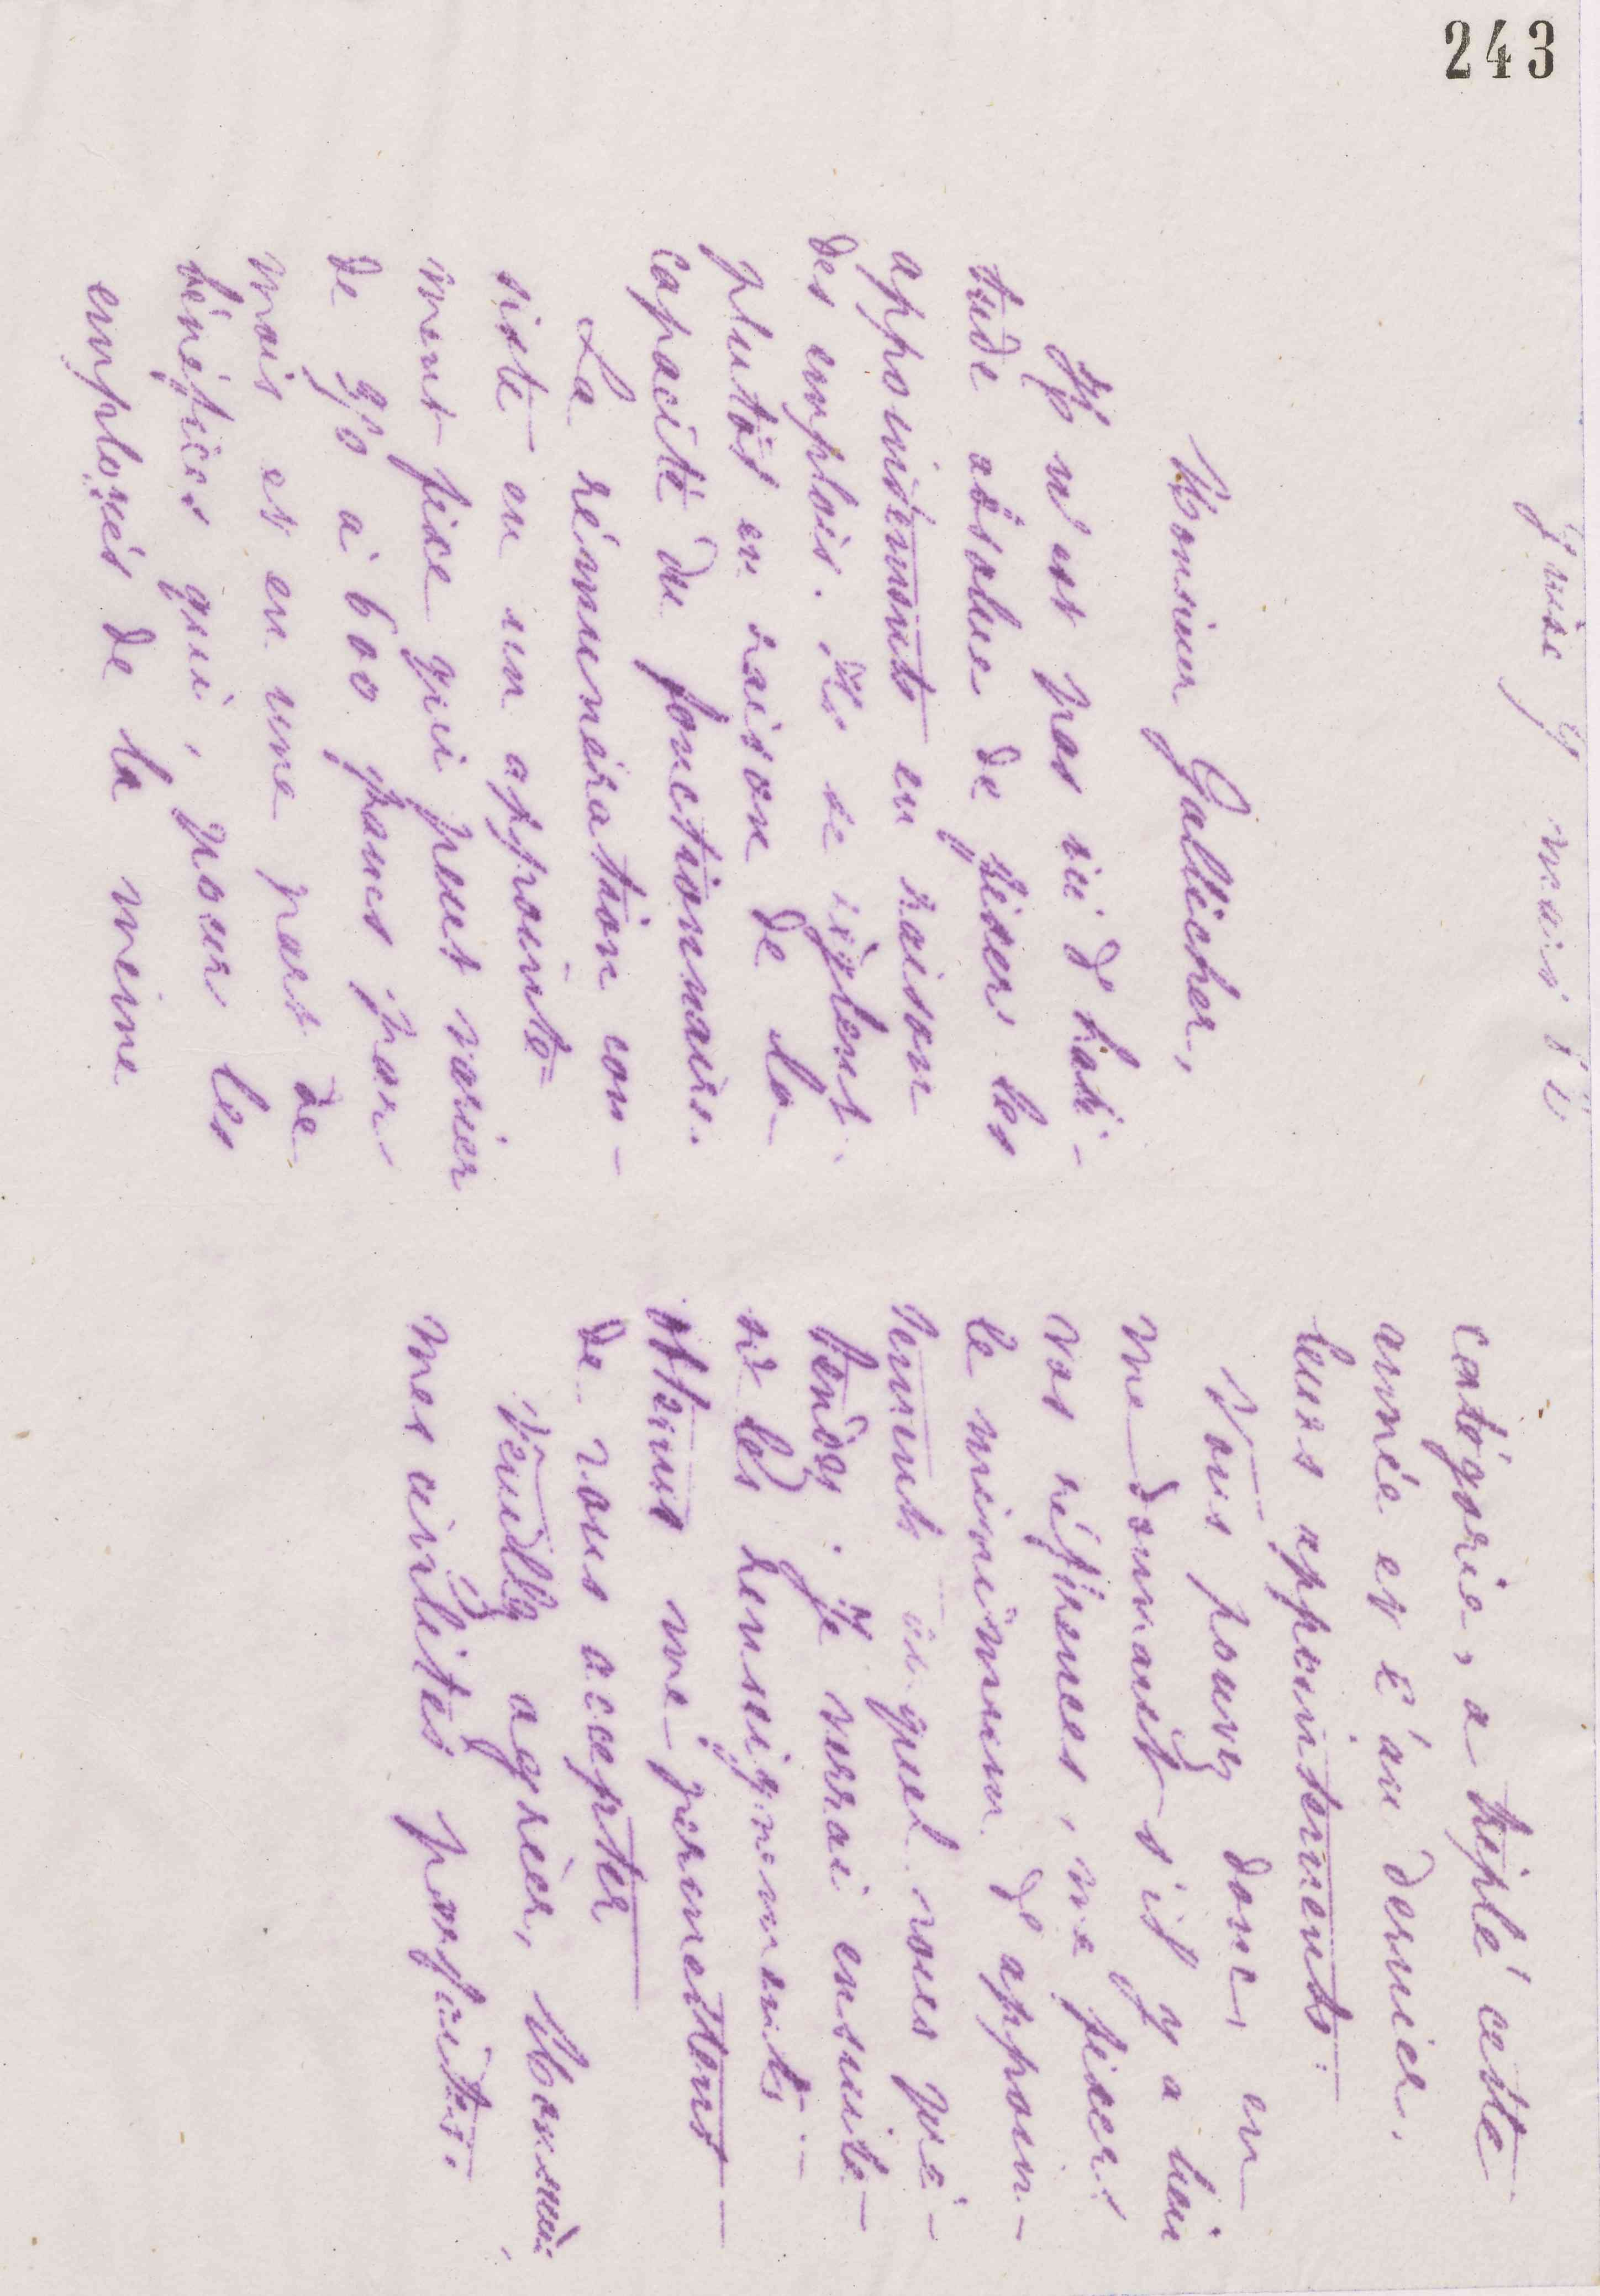 243
Guise 9 mars 82
Monsieur Gallicher,
Il n'est pas ici d'habi-
tude absolue de fixer les
appointements en raison
des emplois. Ils se règlent
plutôt en raison de la
capacité du fonctionnaire.
La rémunération con-
siste en un appointe-
ment fixe qui peut varier
de à 600 francs par
mois et en une part de
bénéfices qui, pour les
employés de la même
catégorie, a triplé cette
année et l'an dernier,
leurs appointements.
Vous pouvez donc, en
me donnant s'il y a lieu
vos références, me fixer
le minimum d'appoin-
tements auquel vous pré-
tendez. Je verrai ensuite
si les renseignements
obtenus me permettent
de vous accepter
Veuillez agréer, Monsieur,
mes civilités parfaites.